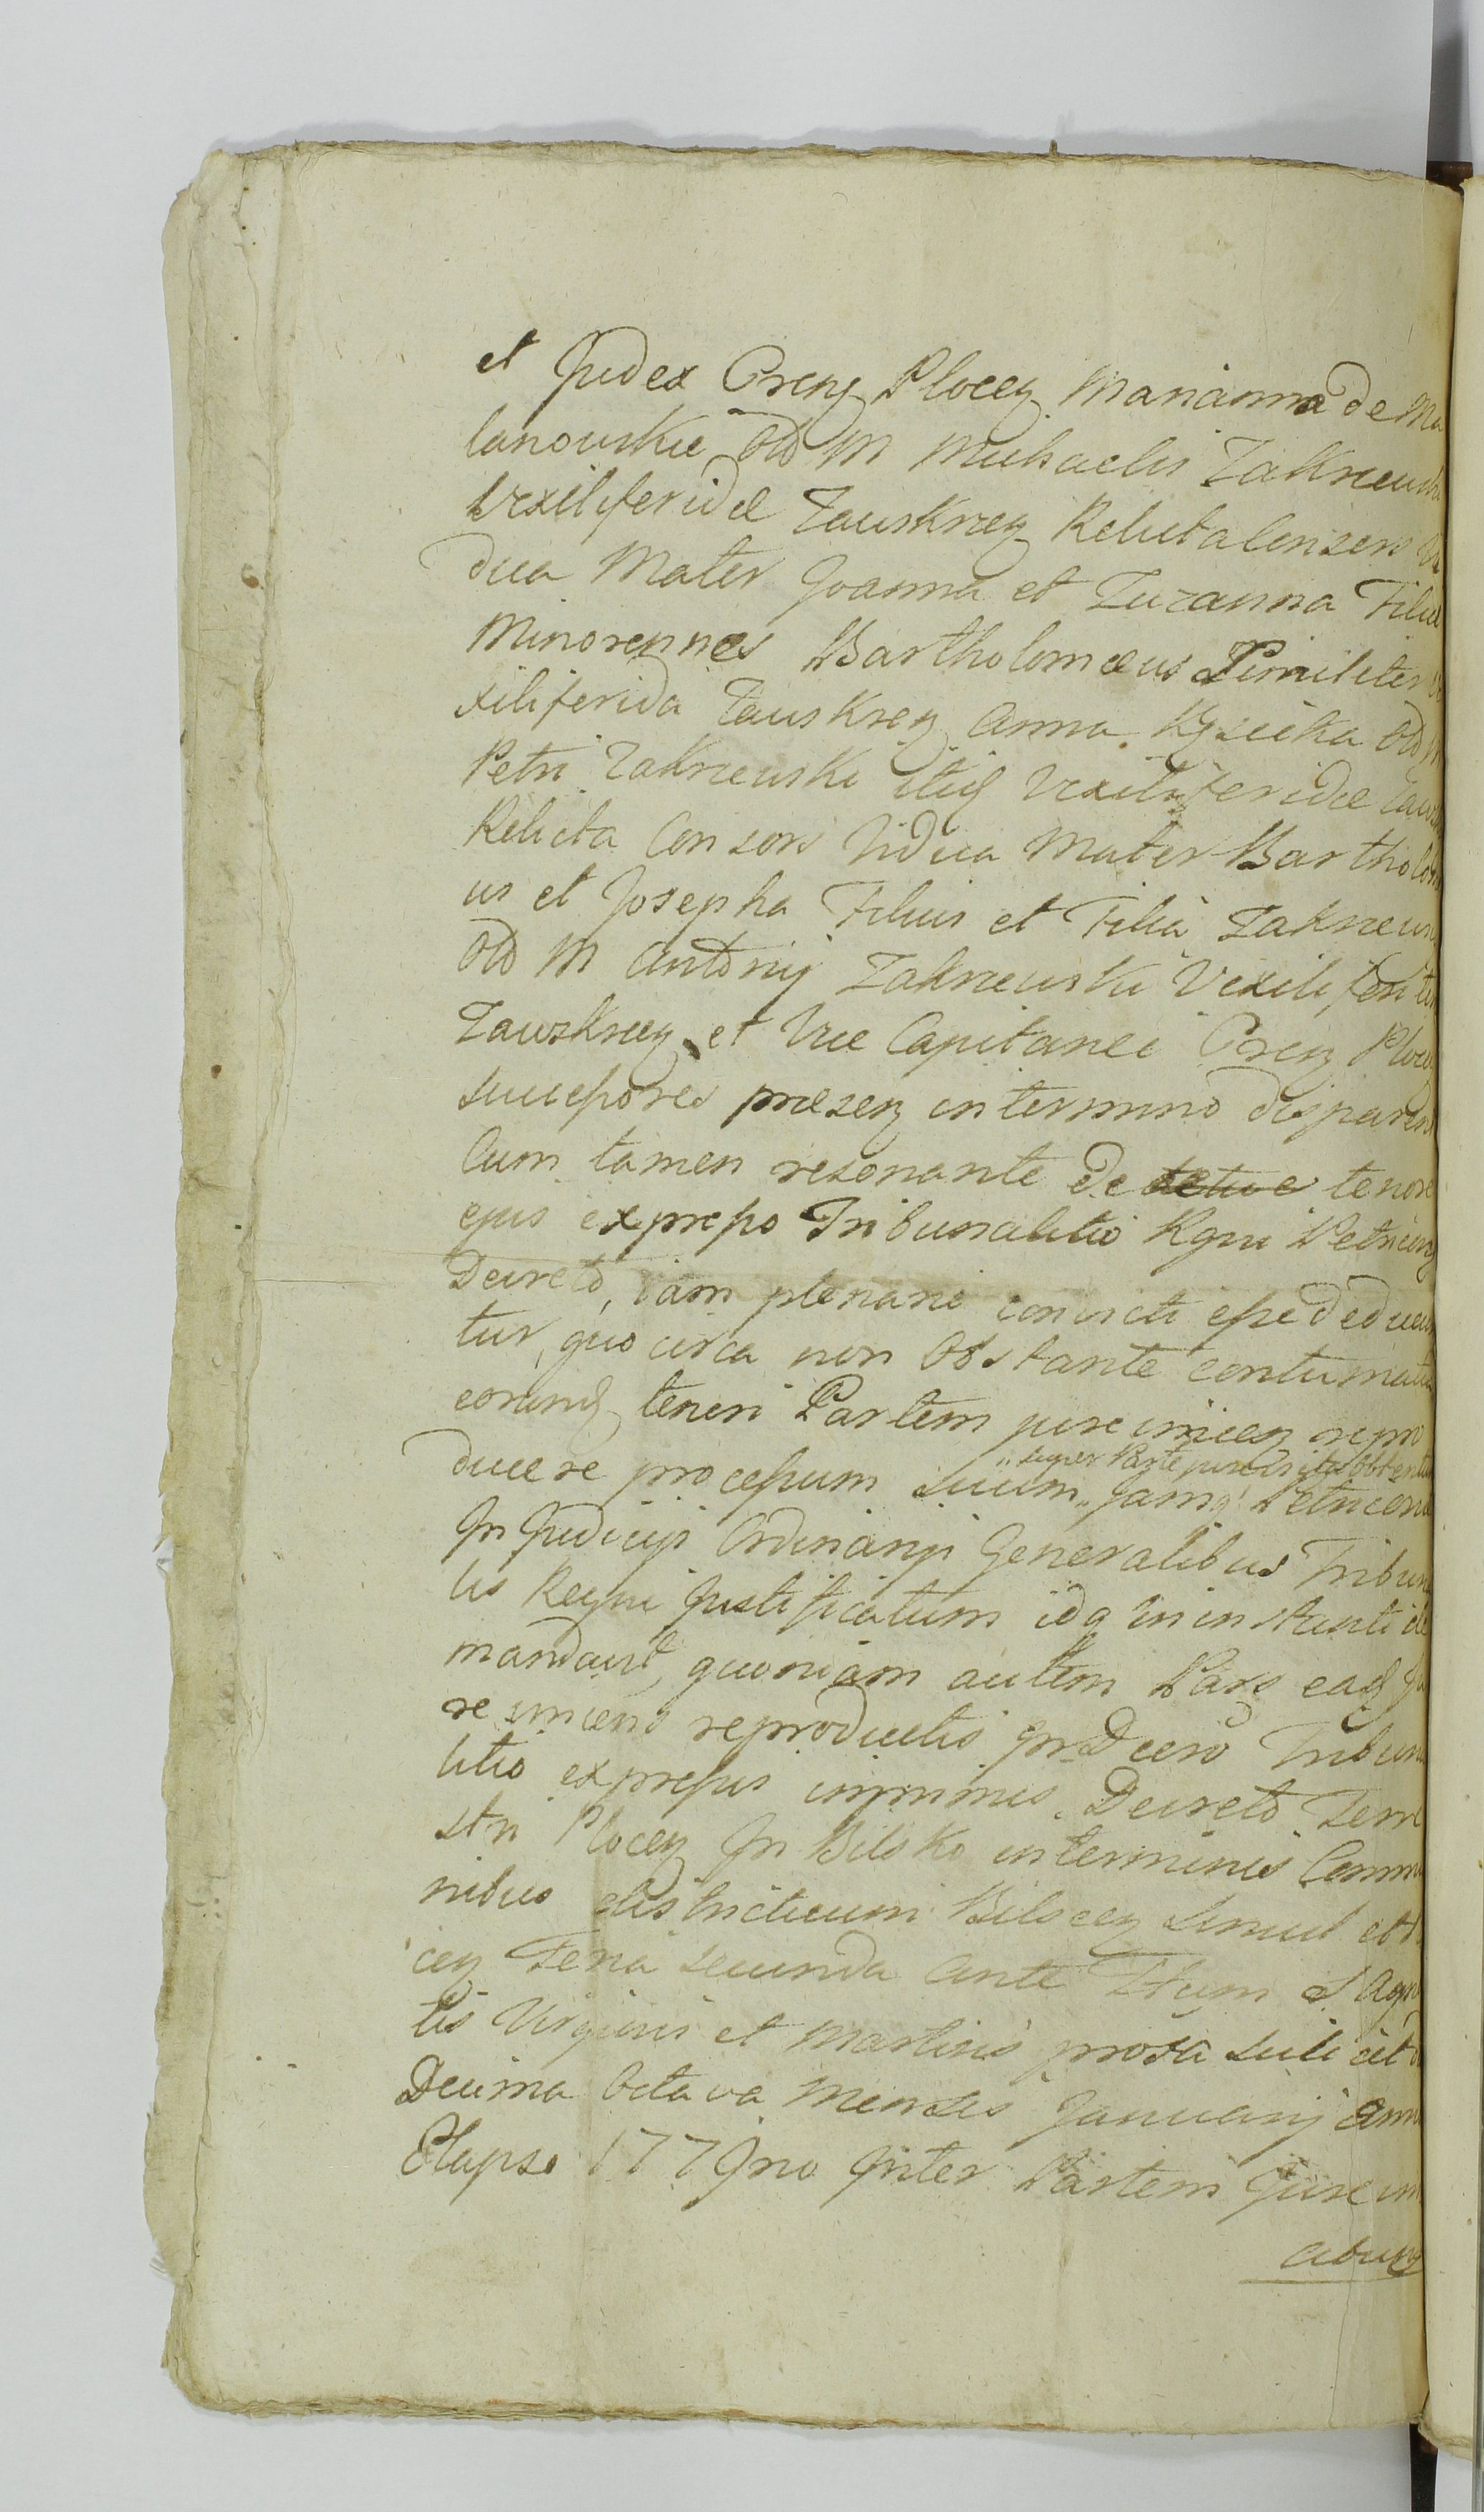 et Judex Creng Plocen Marianna de Ma
lanowskie Olo M Michaelis Zakrzewski
Vexiliferidæ Zawskrzeg Relicta Consors Vi
dua Mater Joanna et Zuzanna Filiæ
Minorennes Bartholomæus Similiter Ve
xiliferida Zawskrzeg Anna Kęsicka Olo M
Petri Zakrzewski itid Vexiliferidæ Zawsk
Relicta Consors Vidua Mater Bartholom
us et Josepha Filius et Filia Zakrzews
Olo M Antonij Zakrzewski Vexiliferi
Zawskrzeg et Vice Capitanei Creng Plocen
successores præsen in termino disparen
Cum tamen resonante de tenore
ejus expresso Tribunalitio Rgni Petricen
Decreto, iam plenarie convicti esse deducun
tur, quo circa non Obstante contumatia
eorund teneri Partem jure vincen repro
super Parte jurevicta obtentum
ducere processum suum Jamq Petricovia
In Judicijs Ordinarijs Generalibus Tribuna
lis Regni Justificatum idq in instanti de
mandavit, quoniam autem Pars ead Ju
re vincens reproductis pr Decro Tribuna
litio expressis imprimis Decreto Terre
stri Plocen In Bilsko in terminis Commu
nibus districtuum Bilscen simul et
cen Feria secunda Ante Ftum S Agne
tis Virginis et Martiris proxa scilicet
Decima Octava Mensis Januarij Anni
Elapso 1779no Inter Partem Jure vin